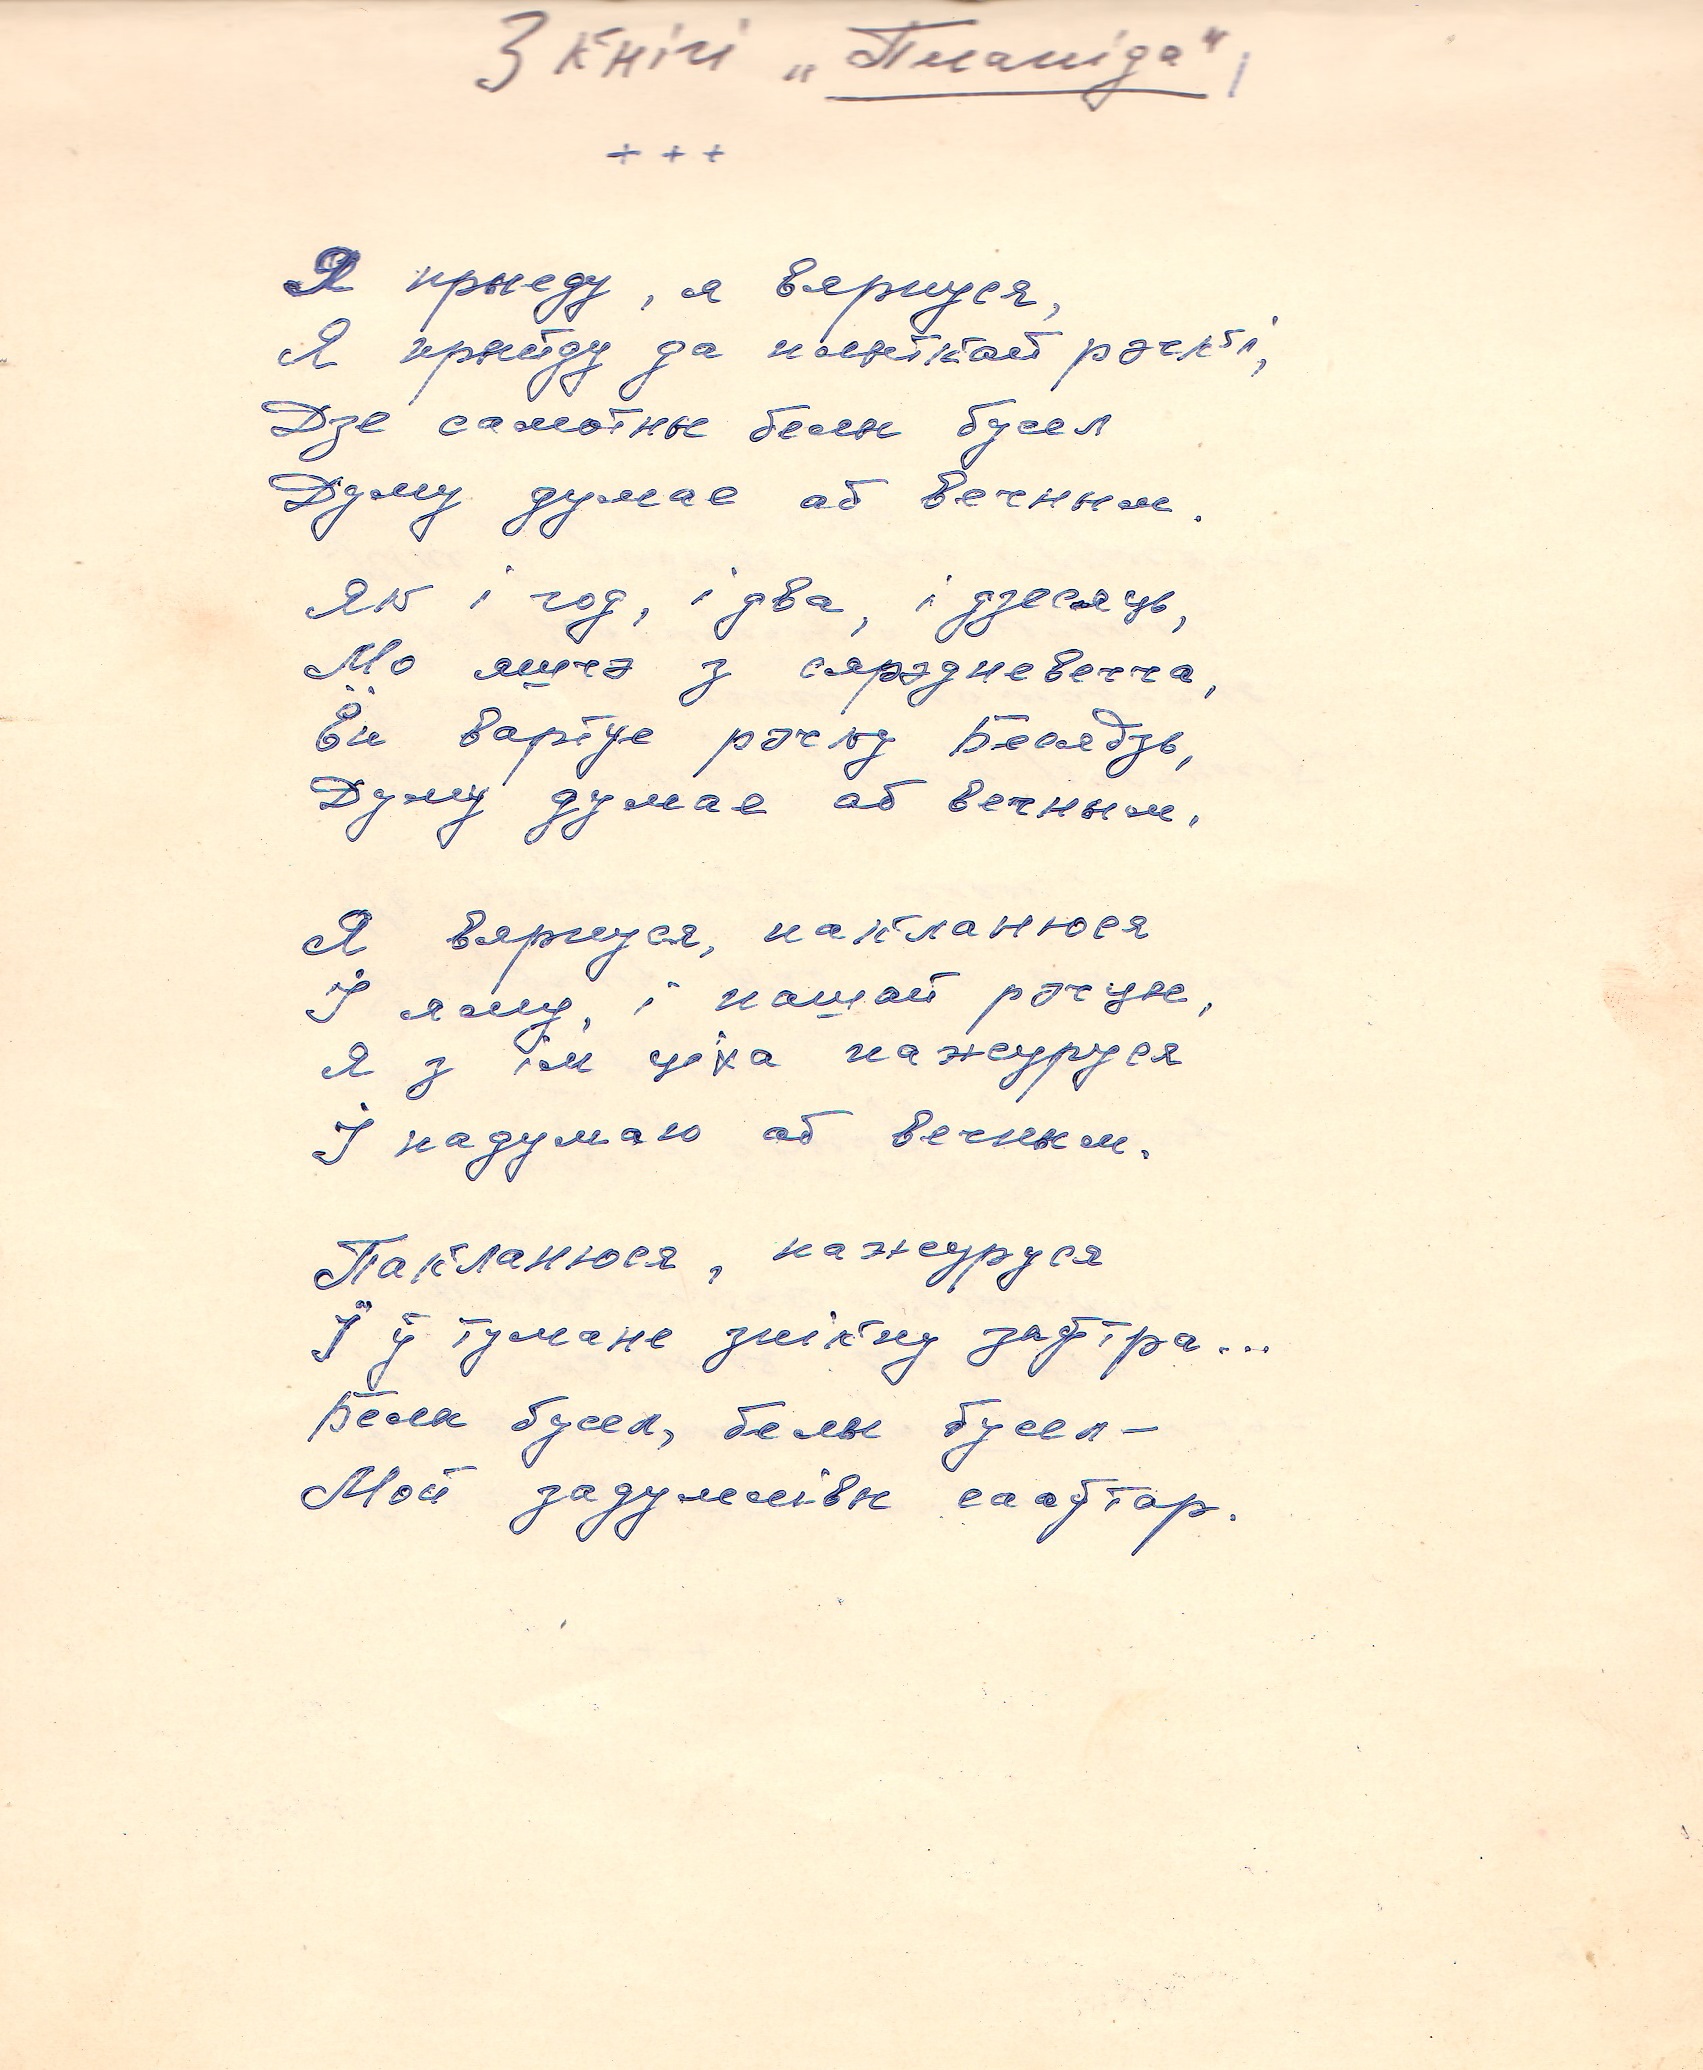 З кнігі „Планіда“
+ + +
Я прыеду, я вярнуся,
Я прыйду да плыткай рэчкі,
Дзе самотны белы бусел
Думу думае аб вечным.
Як і год, і два, і дзесяць,
Мо яшчэ з сярэдневечча,
Ён вартуе рэчку Бесядзь,
Думу думае аб вечным.
Я вярнуся, пакланюся
І яму, і нашай рэчцы,
Я з ім ціха пажуруся
І падумаю аб вечным.
Пакланюся, пажуруся
І ў тумане знікну заўтра...
Белы бусел, белы бусел –
Мой задумлівы сааўтар.